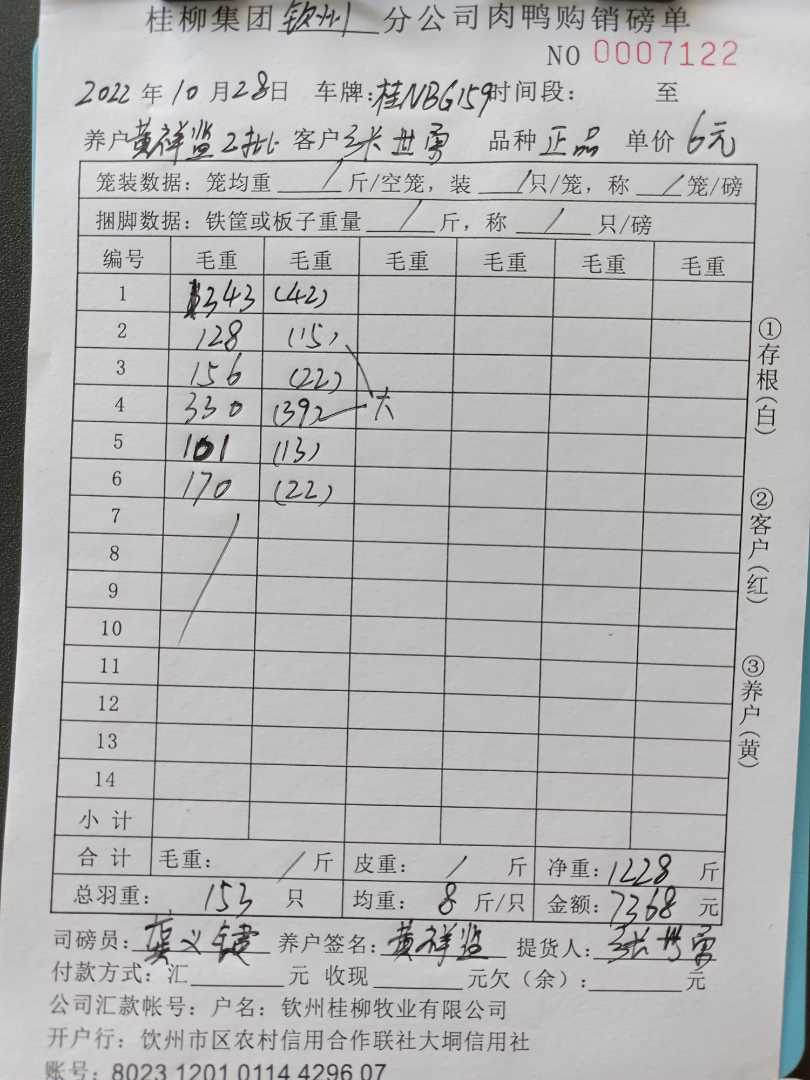 桂柳集团钦州分公司肉鸭购销磅单
NO 0007122
2022年10月28日 车牌:桂NBG159时间段: 至
养户黄祥监2批 客户张世勇 品种正品 单价6元
笼装数据:笼均重/斤/空笼,装/只/笼,称/笼/磅
捆脚数据:铁筐或板子重量/斤,称/只/磅
编号 毛重 毛重 毛重 毛重 毛重 毛重
1 343 (42)
2 128 (15)
3 156 (22)
4 330 (39) 大
5 101 (13)
6 170 (22)
7
8
9
10
11
12
13
14
小计
合计 毛重:/斤 皮重:/斤 净重:1228斤
总羽重:153只 均重:8斤/只 金额:7368元
司磅员: 养户签名:黄祥监 提货人:张世勇
付款方式:汇 元 收现 元欠(余): 元
公司汇款帐号:户名:钦州桂柳牧业有限公司
开户行:钦州市区农村信用合作联社大垌信用社
账号:8023 1201 0114 4296 07
①存根(白)
②客户(红)
③养户(黄)